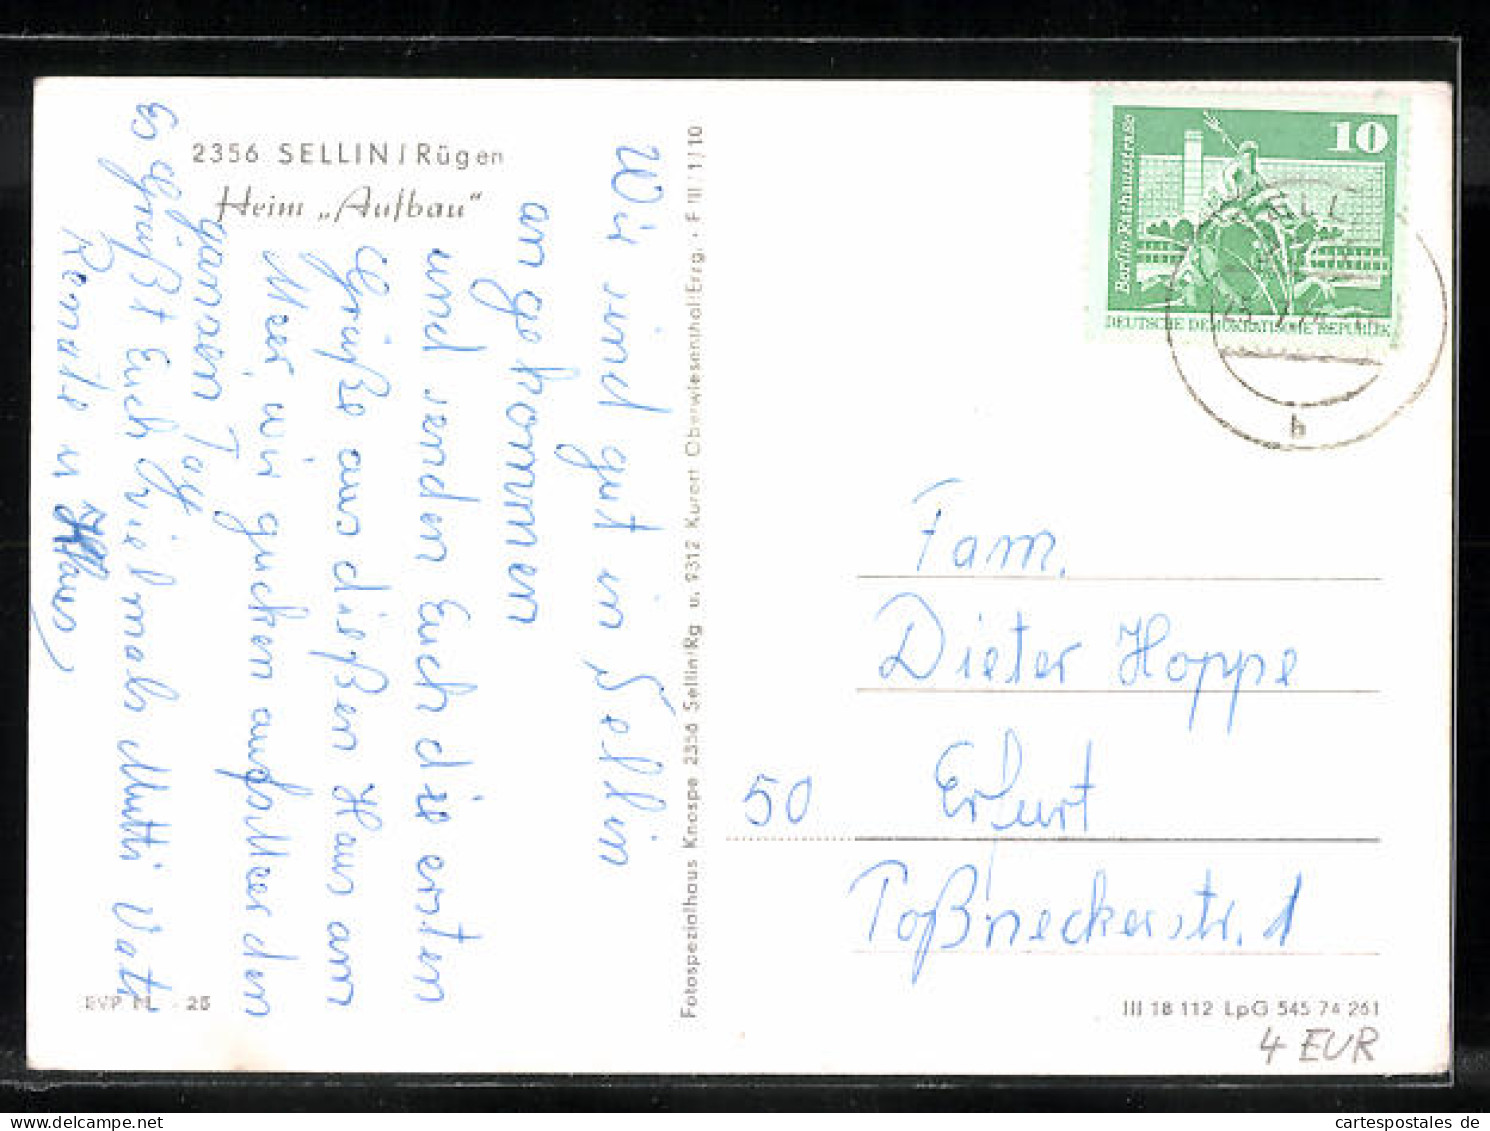 2356 SELLIN/Rügen
Heim „Aufbau"
Wir sind gut in Sellin
angekommen
und senden Euch die ersten
Grüße aus dißen Haus am
Meer, wir gucken auf den
ganzen Tag
Es grüßt Euch vielmals Mutti Vati
Renate u
EVP M -.25
Fotospezialhaus Knospe 2356 Sellin/Rg u. 9312 Kurort Oberwiesenthal/Erzg. • F III/1/10
10
Berlin-Rathausstraße
DEUTSCHE DEMOKRATISCHE REPUBLIK
b
Fam.
Dieter Hoppe
50 Erfurt
Poßneckerstr. 1
III 18 112 LpG 545 74 261
4 EUR
cartespostales de